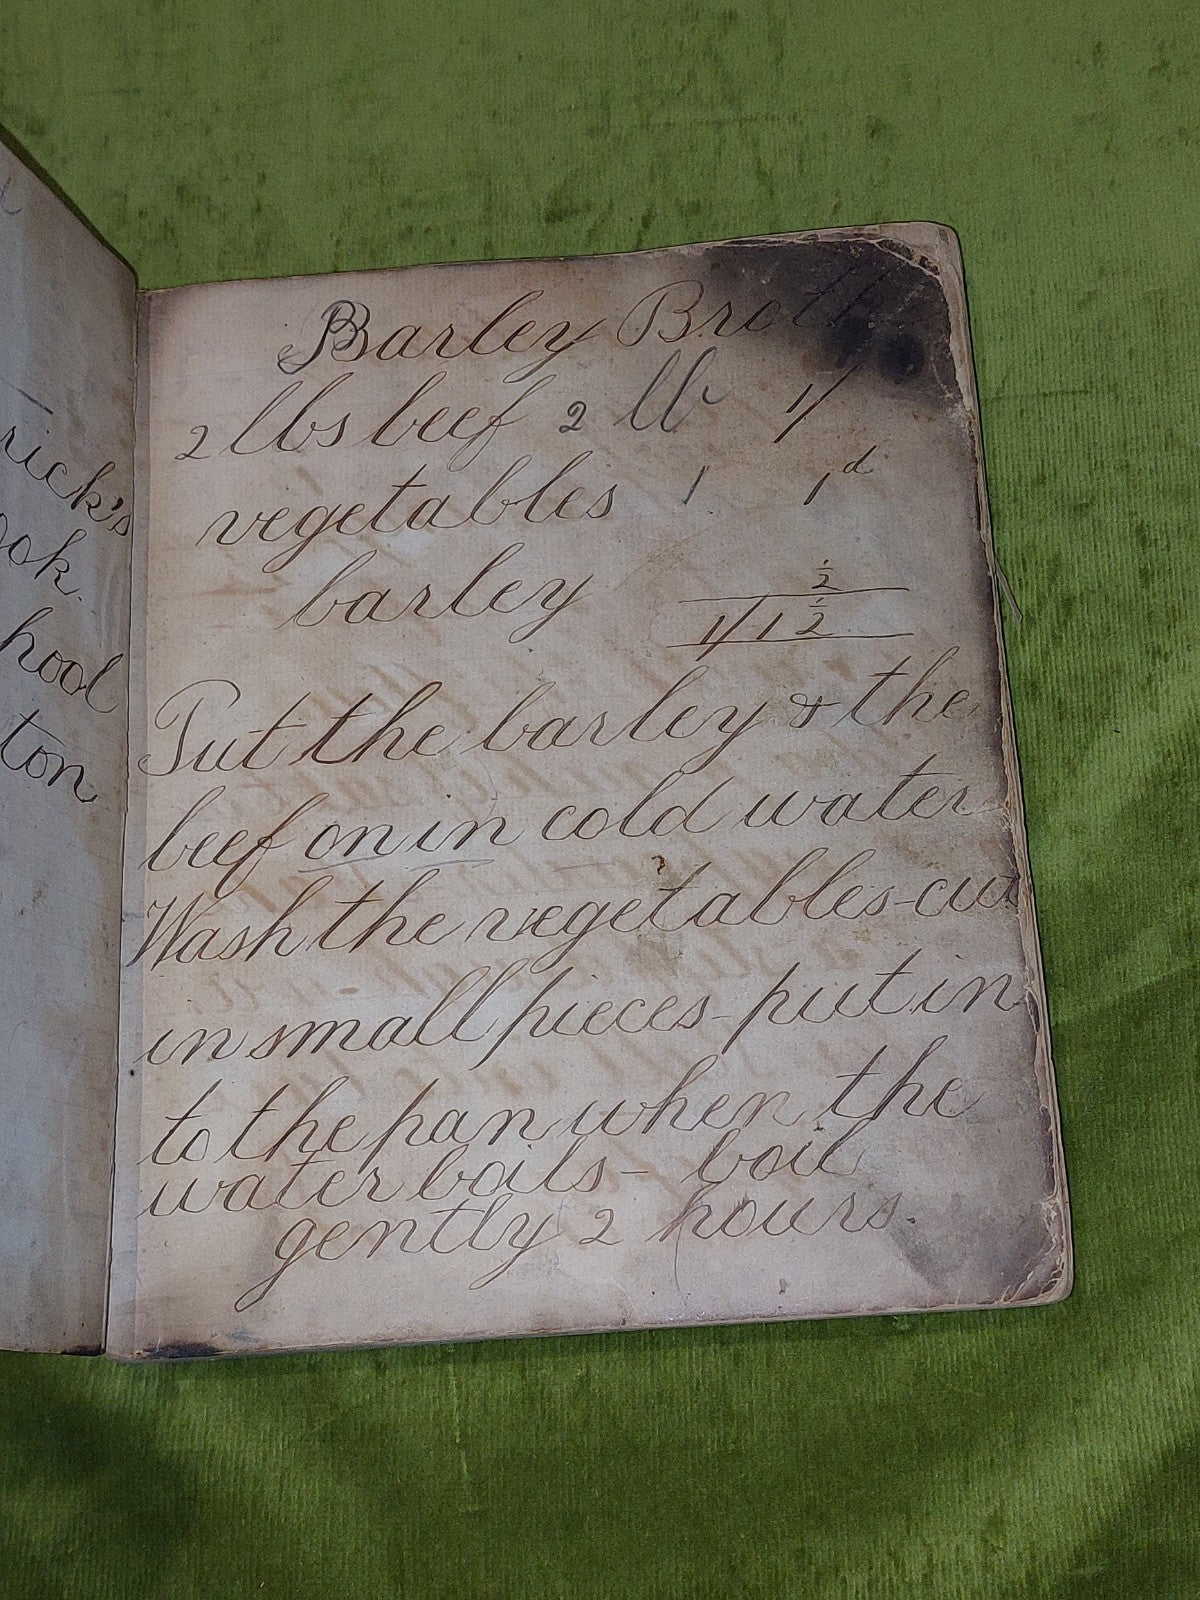 rick's
ook.
hool
ton
Barley Broth
2 lbs beef 2 lb 1/
vegetables 1 1d
barley ½
1/1½
Put the barley & the
beef on in cold water
Wash the vegetables - cut
in small pieces - put in
to the pan when the
water boils - boil
gently 2 hours.